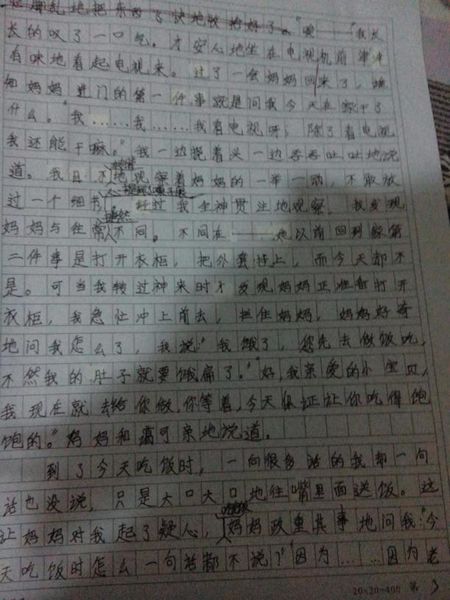 乱地把东西了快地收拾好了。"唉——"我长
长的叹了一口气。才安心地坐在电视机前津津
有味地看起电视来。过了一会妈妈回来了,
妈妈进门的第一件事就是问我今天在家干了
什么。"我……我……我看电视呀,除了看电视
我还能干嘛。"我一边挠着头一边吞吞吐吐地说
道。我目不地观察着妈妈的一举一动,不敢放
过一个细节,经过我全神贯注地观察,我发现
妈妈与往常不同。不同在——她以前回到家第
二件事是打开衣柜,把外套挂上,而今天却不
是。可当我转过神来时才发现妈妈正准备打开
衣柜,我急忙冲上前去,拦住妈妈,妈妈好奇
地问我怎么了,我说:"我饿了,您先去做饭吧,
不然我的肚子就要饿扁了。""好我亲爱的小宝贝,
我现在就去给你做,你等着,今天保证让你吃得饱
饱的。"妈妈和蔼可亲地说道。
到了今天吃饭时,一向很多话的我却一句
话也没说,只是大口大口地往嘴里面送饭。这
让妈妈对我起了疑心,妈妈郑重其事地问我:"今
天吃饭时怎么一句话都不说?"因为……因为老
20×20=400 第 3